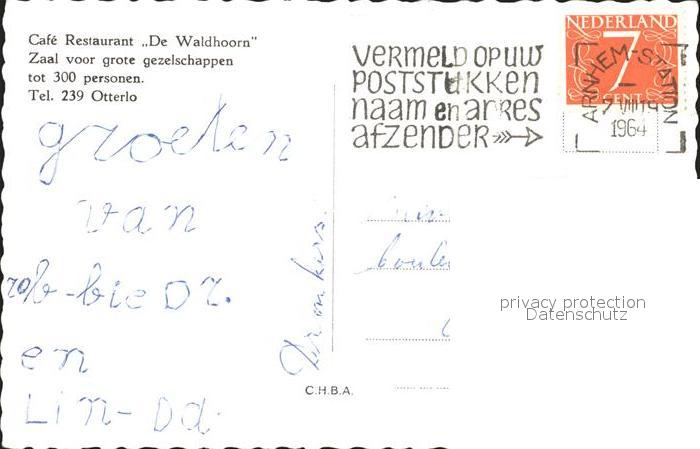 Café Restaurant „De Waldhoorn"
Zaal voor grote gezelschappen
tot 300 personen.
Tel. 239 Otterlo
groeten
van
rob-bie Dr.
en
Lin-Da.
C.H.B.A.
VERMELD OP UW
POSTSTUKKEN
NAAM EN ADRES
AFZENDER
NEDERLAND
7
CENT
ARNHEM-STATION
7 VIII 19
1964
privacy protection
Datenschutz